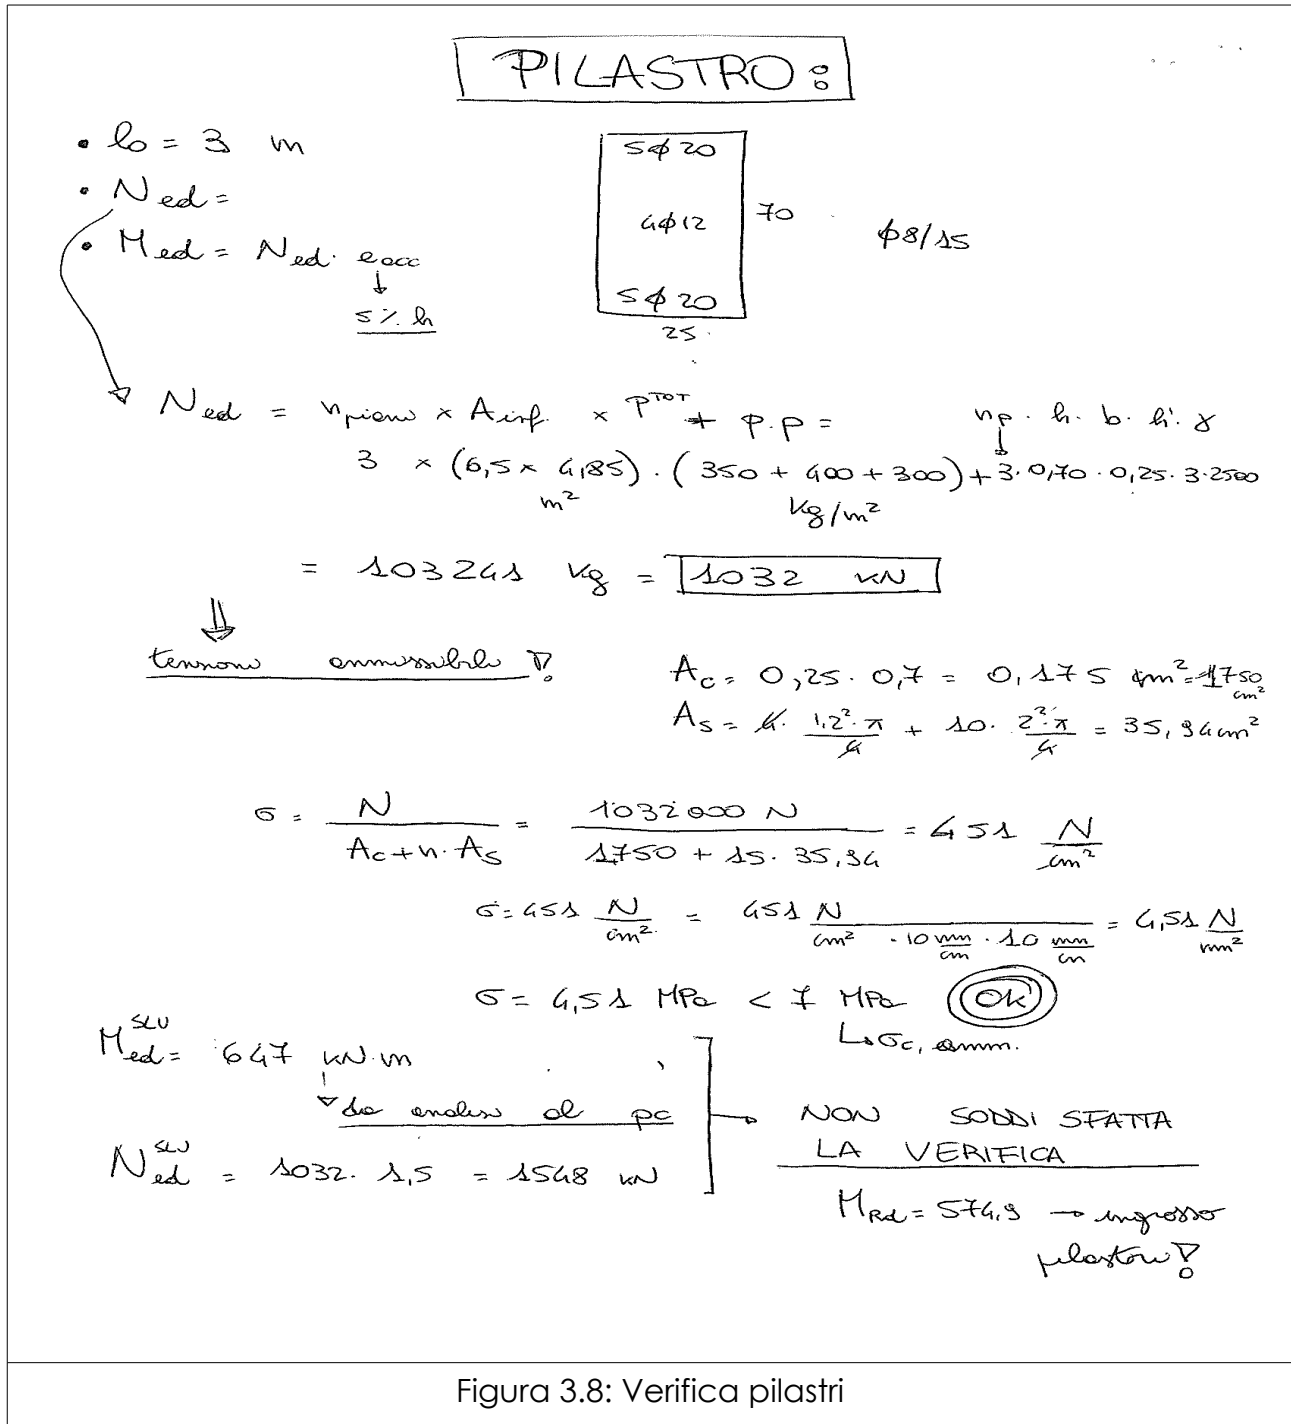 PILASTRO:
• lo = 3 m
• Ned =
• Med = Ned · eacc
5% h
5ϕ20
4ϕ12
5ϕ20
70
25
ϕ8/15
Ned = npiano × Ainf. × P^TOT + P.P =
np · h · b · h' · γ
3 × (6,5 × 4,85) · (350 + 400 + 300) + 3 · 0,70 · 0,25 · 3 · 2500
m² kg/m²
= 103241 kg = 1032 kN
⇓
tensione ammissibile !
Ac = 0,25 · 0,7 = 0,175 m² = 1750 cm²
As = 4 · 1,2² · π / 4 + 10 · 2² · π / 4 = 35,94 cm²
σ = N / (Ac + n · As) = 1032000 N / (1750 + 15 · 35,94) = 451 N/cm²
σ = 451 N/cm² = 451 N / (cm² · 10 mm/cm · 10 mm/cm) = 4,51 N/mm²
σ = 4,51 MPa < 7 MPa OK
↳ σc, amm.
Med^SLU = 647 kN·m
da analisi al pc
Ned^SLU = 1032 · 1,5 = 1548 kN
NON SODDISFATTA
LA VERIFICA
MRd = 574,9 → ingrosso
pilastro !
Figura 3.8: Verifica pilastri